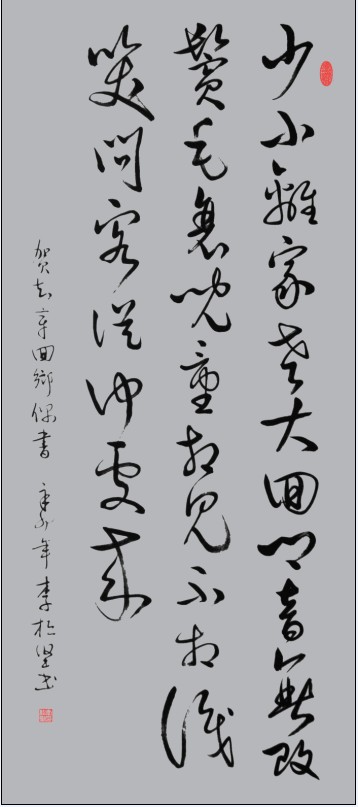 少小離家老大回鄉音無改
鬢毛衰兒童相見不相識
笑問客從何處來
賀知章回鄉偶書 年李書